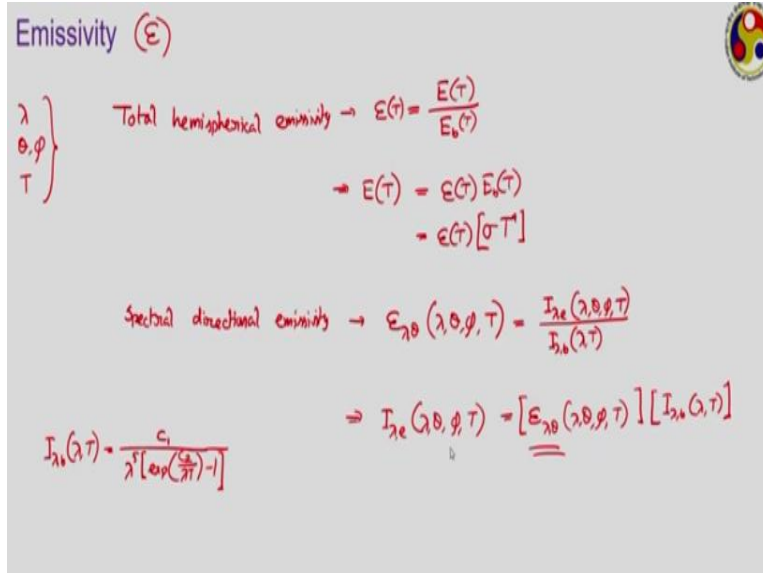 Emissivity (ε)
λ
θ,φ
T
Total hemispherical emissivity → ε(T) = E(T) / E_b(T)
⇒ E(T) = ε(T) E_b(T)
= ε(T) [σT⁴]
Spectral directional emissivity → ε_λθ (λ,θ,φ,T) = I_λe (λ,θ,φ,T) / I_λb (λ,T)
⇒ I_λe (λ,θ,φ,T) = [ε_λθ (λ,θ,φ,T)] [I_λb (λ,T)]
I_λb (λ,T) = C₁ / λ⁵ [exp(C₂/λT) -1]